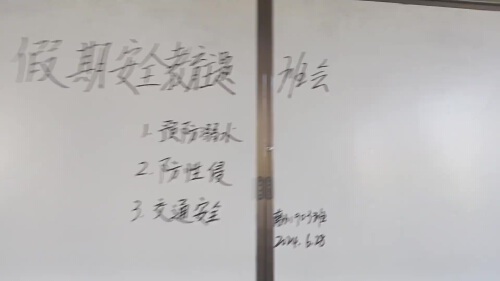 假期安全教育主题 班会
1. 预防溺水
2. 防性侵
3. 交通安全
班
2024.6.28